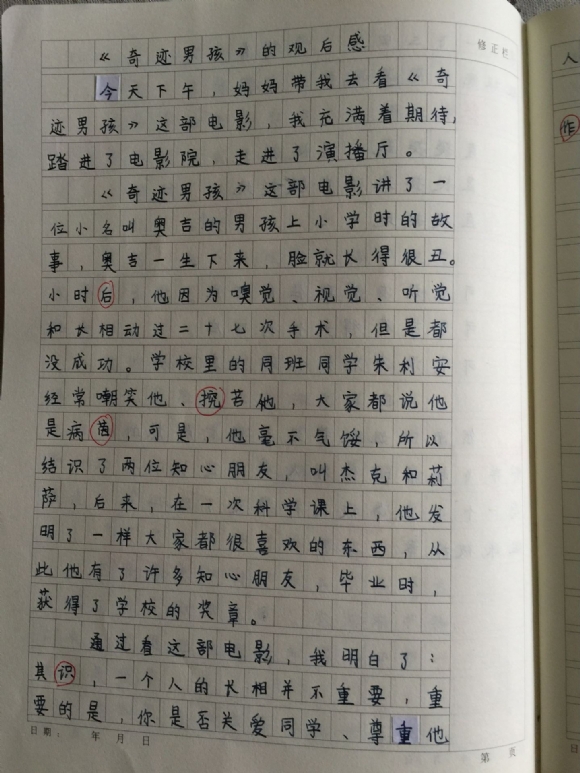 修正栏
《奇迹男孩》的观后感
今天下午，妈妈带我去看《奇
迹男孩》这部电影，我充满着期待，
踏进了电影院，走进了演播厅。
《奇迹男孩》这部电影讲了一
位小名叫奥吉的男孩上小学时的故
事，奥吉一生下来，脸就长得很丑。
小时后，他因为嗅觉、视觉、听觉
和长相动过二十七次手术，但是都
没成功。学校里的同班同学朱利安
经常嘲笑他、挖苦他，大家都说他
是病菌，可是，他毫不气馁，所以
结识了两位知心朋友，叫杰克和莉
萨，后来，在一次科学课上，他发
明了一样大家都很喜欢的东西，从
此他有了许多知心朋友，毕业时，
获得了学校的奖章。
通过看这部电影，我明白了：
其识，一个人的长相并不重要，重
要的是，你是否关爱同学、尊重他
日期： 年 月 日
第 页
人
作
日